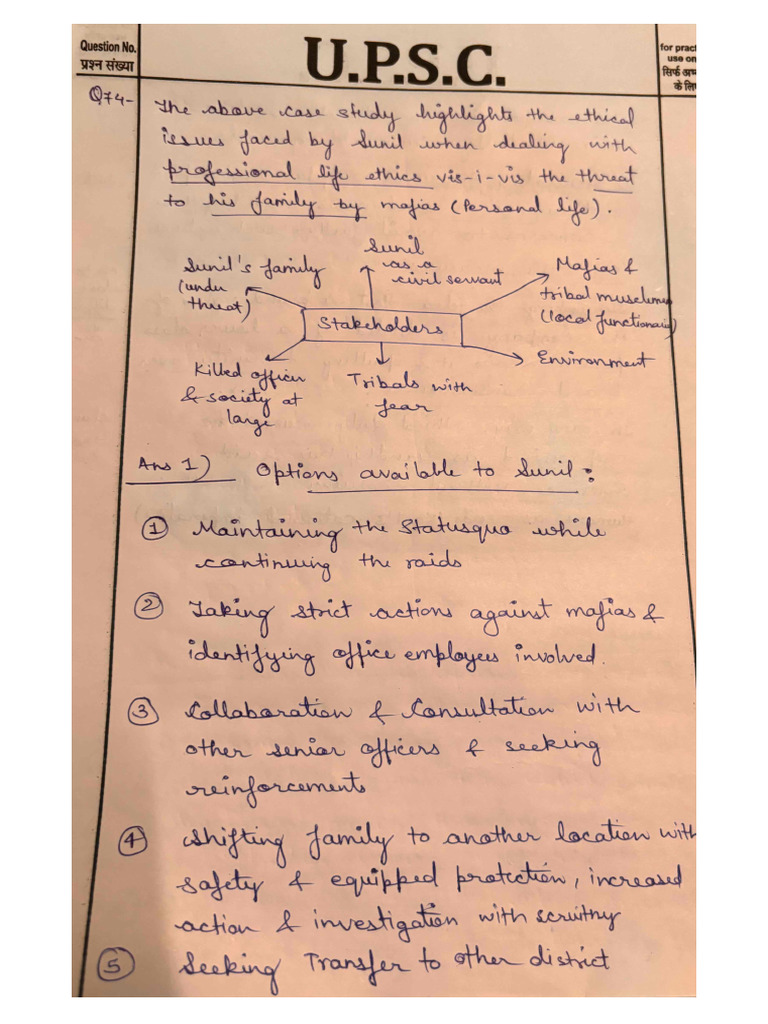 Question No.
प्रश्न संख्या
U.P.S.C.
for pract
use on
सिर्फ अभ्
के लि
Q74-
The above case study highlights the ethical
issues faced by Sunil when dealing with
professional life ethics vis-i-vis the threat
to his family by mafias (Personal life).
Sunil
as a
civil servant
Sunil's family
(under
threat)
Mafias &
tribal musclemen
(local functionaries)
Stakeholders
Killed officer
& society at
large
Tribals with
fear
Environment
Ans 1)
Options available to Sunil:
① Maintaining the Statusquo while
continuing the raids
② Taking strict actions against mafias &
identifying office employees involved.
③ Collaboration & Consultation with
other senior officers & seeking
reinforcements
④ Shifting family to another location with
safety & equipped protection, increased
action & investigation with scruitny
⑤ Seeking Transfer to other district